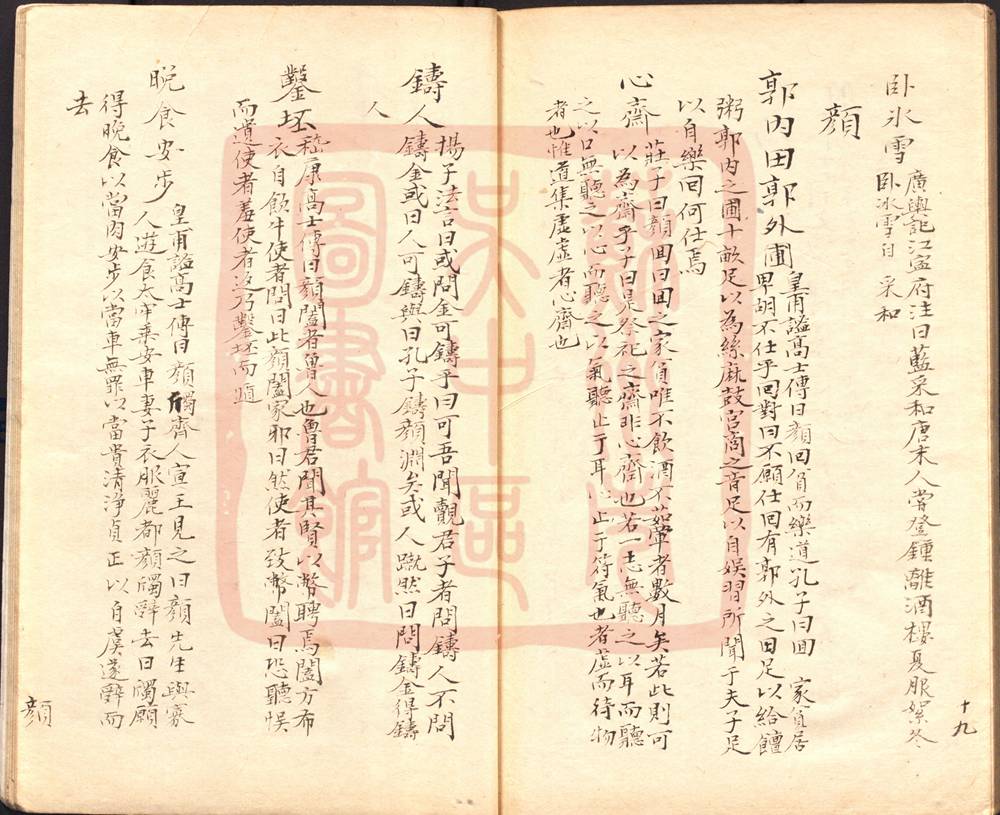 卧氷雪
廣輿記江寧府注曰藍采和唐末人嘗登鍾離酒樓夏服絮冬
卧氷雪自 采和
顔
郭内田郭外圃
皇甫謐髙士傳曰顔回貧而樂道孔子曰囬 家貧居
卑胡不仕乎回對曰不願仕回有郭外之田足以給饘
粥郭内之圃十畝足以為絲麻鼓宫商之音足以自娱習所聞于夫子足
以自樂回何仕焉
心齋
莊子曰顔囬曰囬之家貧唯不飲酒不茹葷者數月矣若此則可
以為齋乎子曰是祭祀之齋非心齋也若一志無聽之以耳而聽
之以心無聽之以心而聽之以氣聽止于耳心止于符氣也者虚而待物
者也惟道集虚虚者心齋也
鑄人
揚子法言曰或問金可鑄乎曰可吾聞覿君子者問鑄人不問
鑄金或曰人可鑄與曰孔子鑄顔淵矣或人踧然曰問鑄金得鑄
人
鑿坯
嵇康髙士傳曰顔闔者魯人也魯君聞其賢以幣聘焉闔方布
衣自飲牛使者問曰此顔闔家邪曰然使者致幣闔曰恐聽悮
而遺使者羞使者返乃鑿坯而遁
晩食安步
皇甫謐髙士傳曰顔斶齊人宣王見之曰顔先生與寡
人遊食太牢乘安車妻子衣服麗都顔斶辭去曰斶願
得晩食以當肉安步以當車無罪以當貴清淨貞正以自虞遂辭而
去
顔
十九